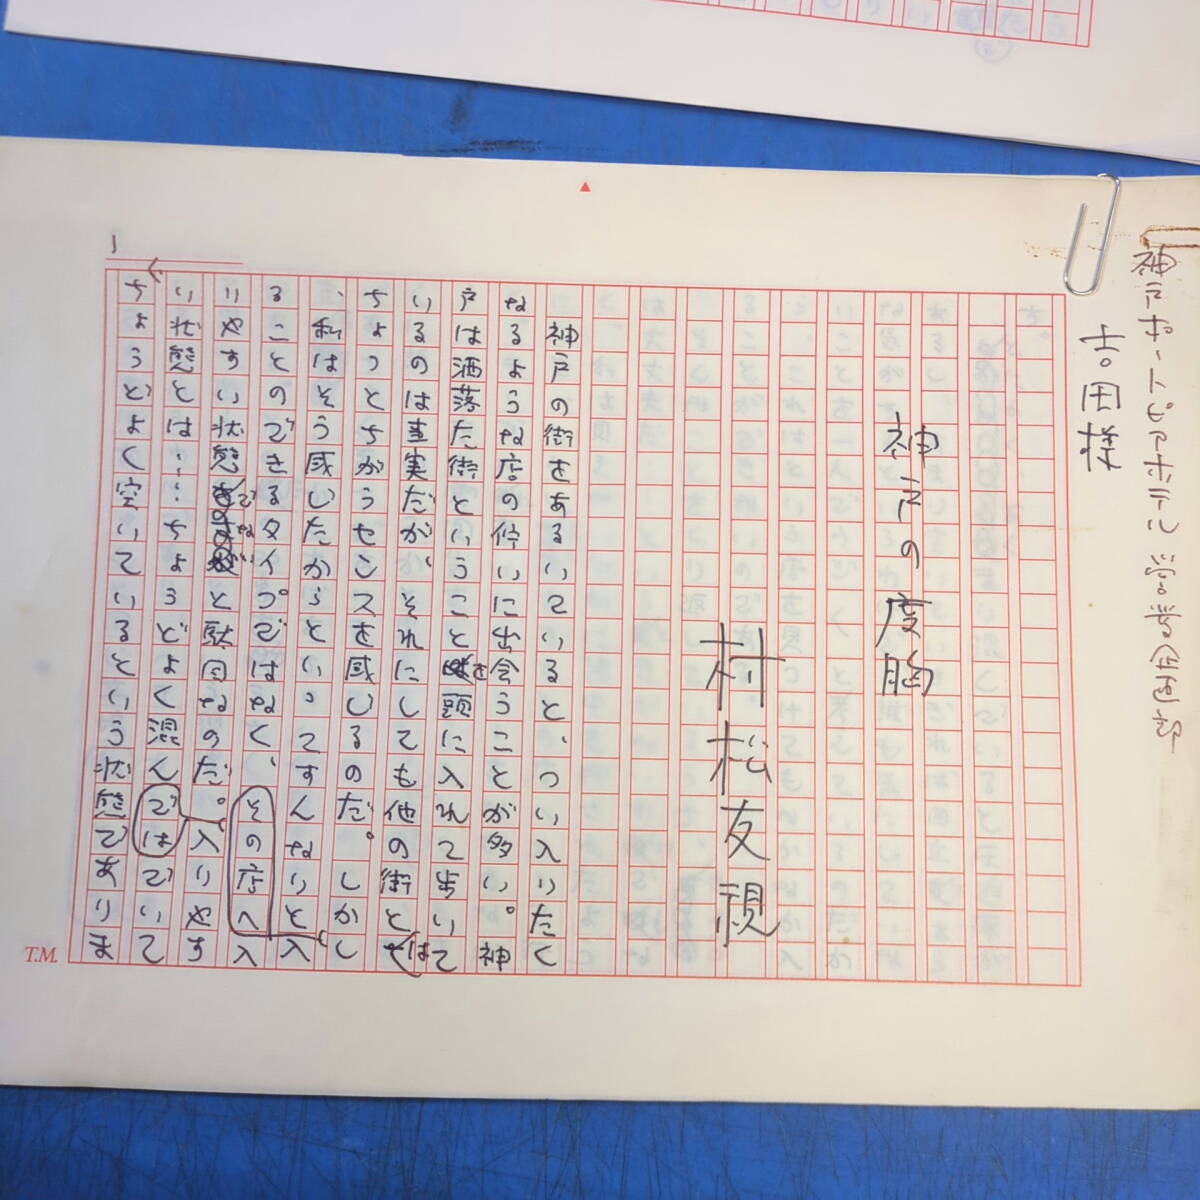 神戸ポートピアホテル 営業企画部
吉田様
神戸の度胸
村松友視
神戸の街をあるいていると、つい入りたく
なるような店の佇いに出会うことが多い。神
戸は洒落た街ということを頭に入れて歩いて
いるのは事実だが、それにしても他の街とは
ちょっとちがうセンスを感じるのだ。しかし
、私はそう感じたからといってすんなりと入
ることのできるタイプではなく、その店へ入
りやすい状態でないと駄目なのだ。入りやす
い状態とは……ちょうどよく混んでいて
では
ちょうどよく空いているという状態でありま
1
T.M.